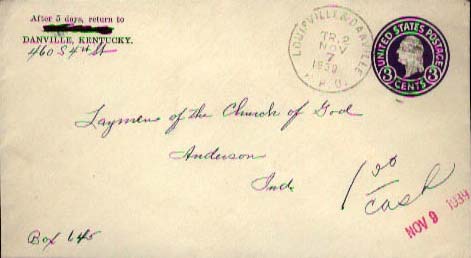 After 5 days, return to
DANVILLE, KENTUCKY.
460 S 4th St
LOUISVILLE & DANVILLE
TR. 2
NOV
7
1939
R.P.O.
UNITED STATES POSTAGE
3 CENTS 3
Laymen of the Church of God
Anderson
Ind.
1 00
Cash
NOV 9 1939
Box 645